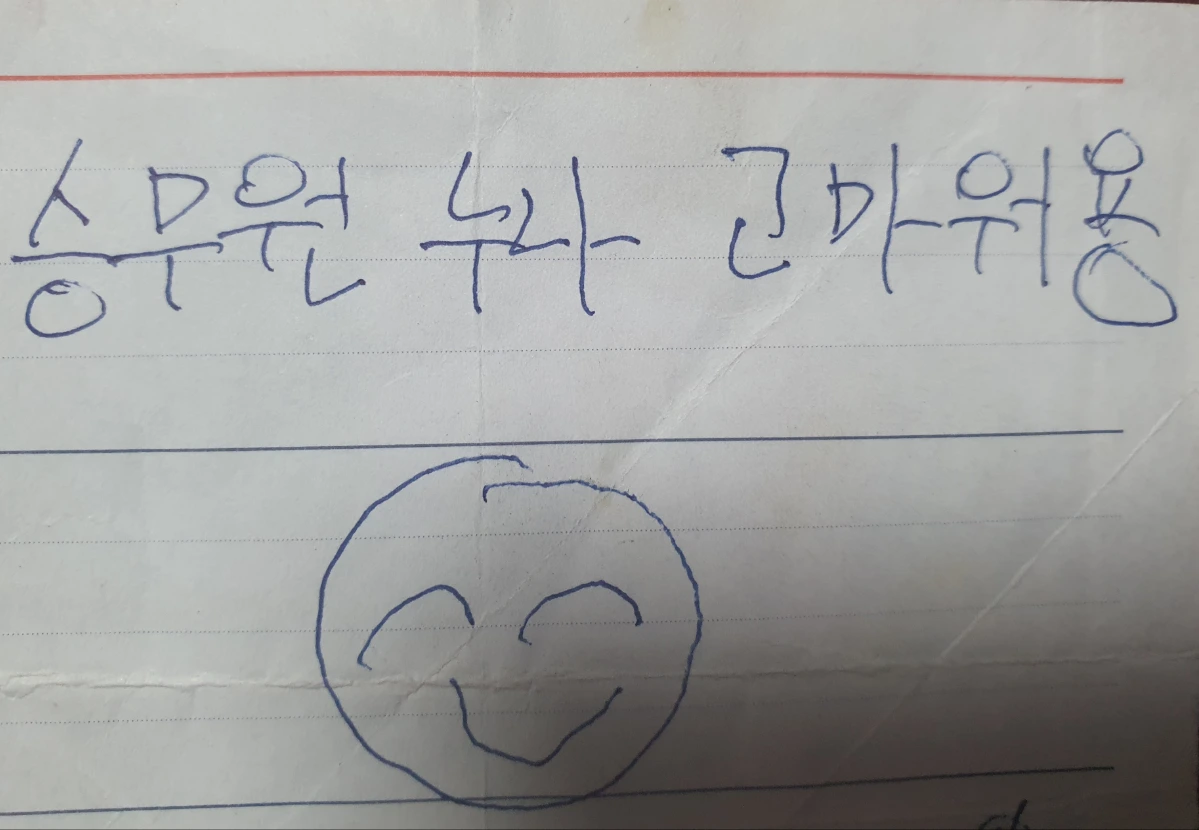 승무원 누나 고마워용